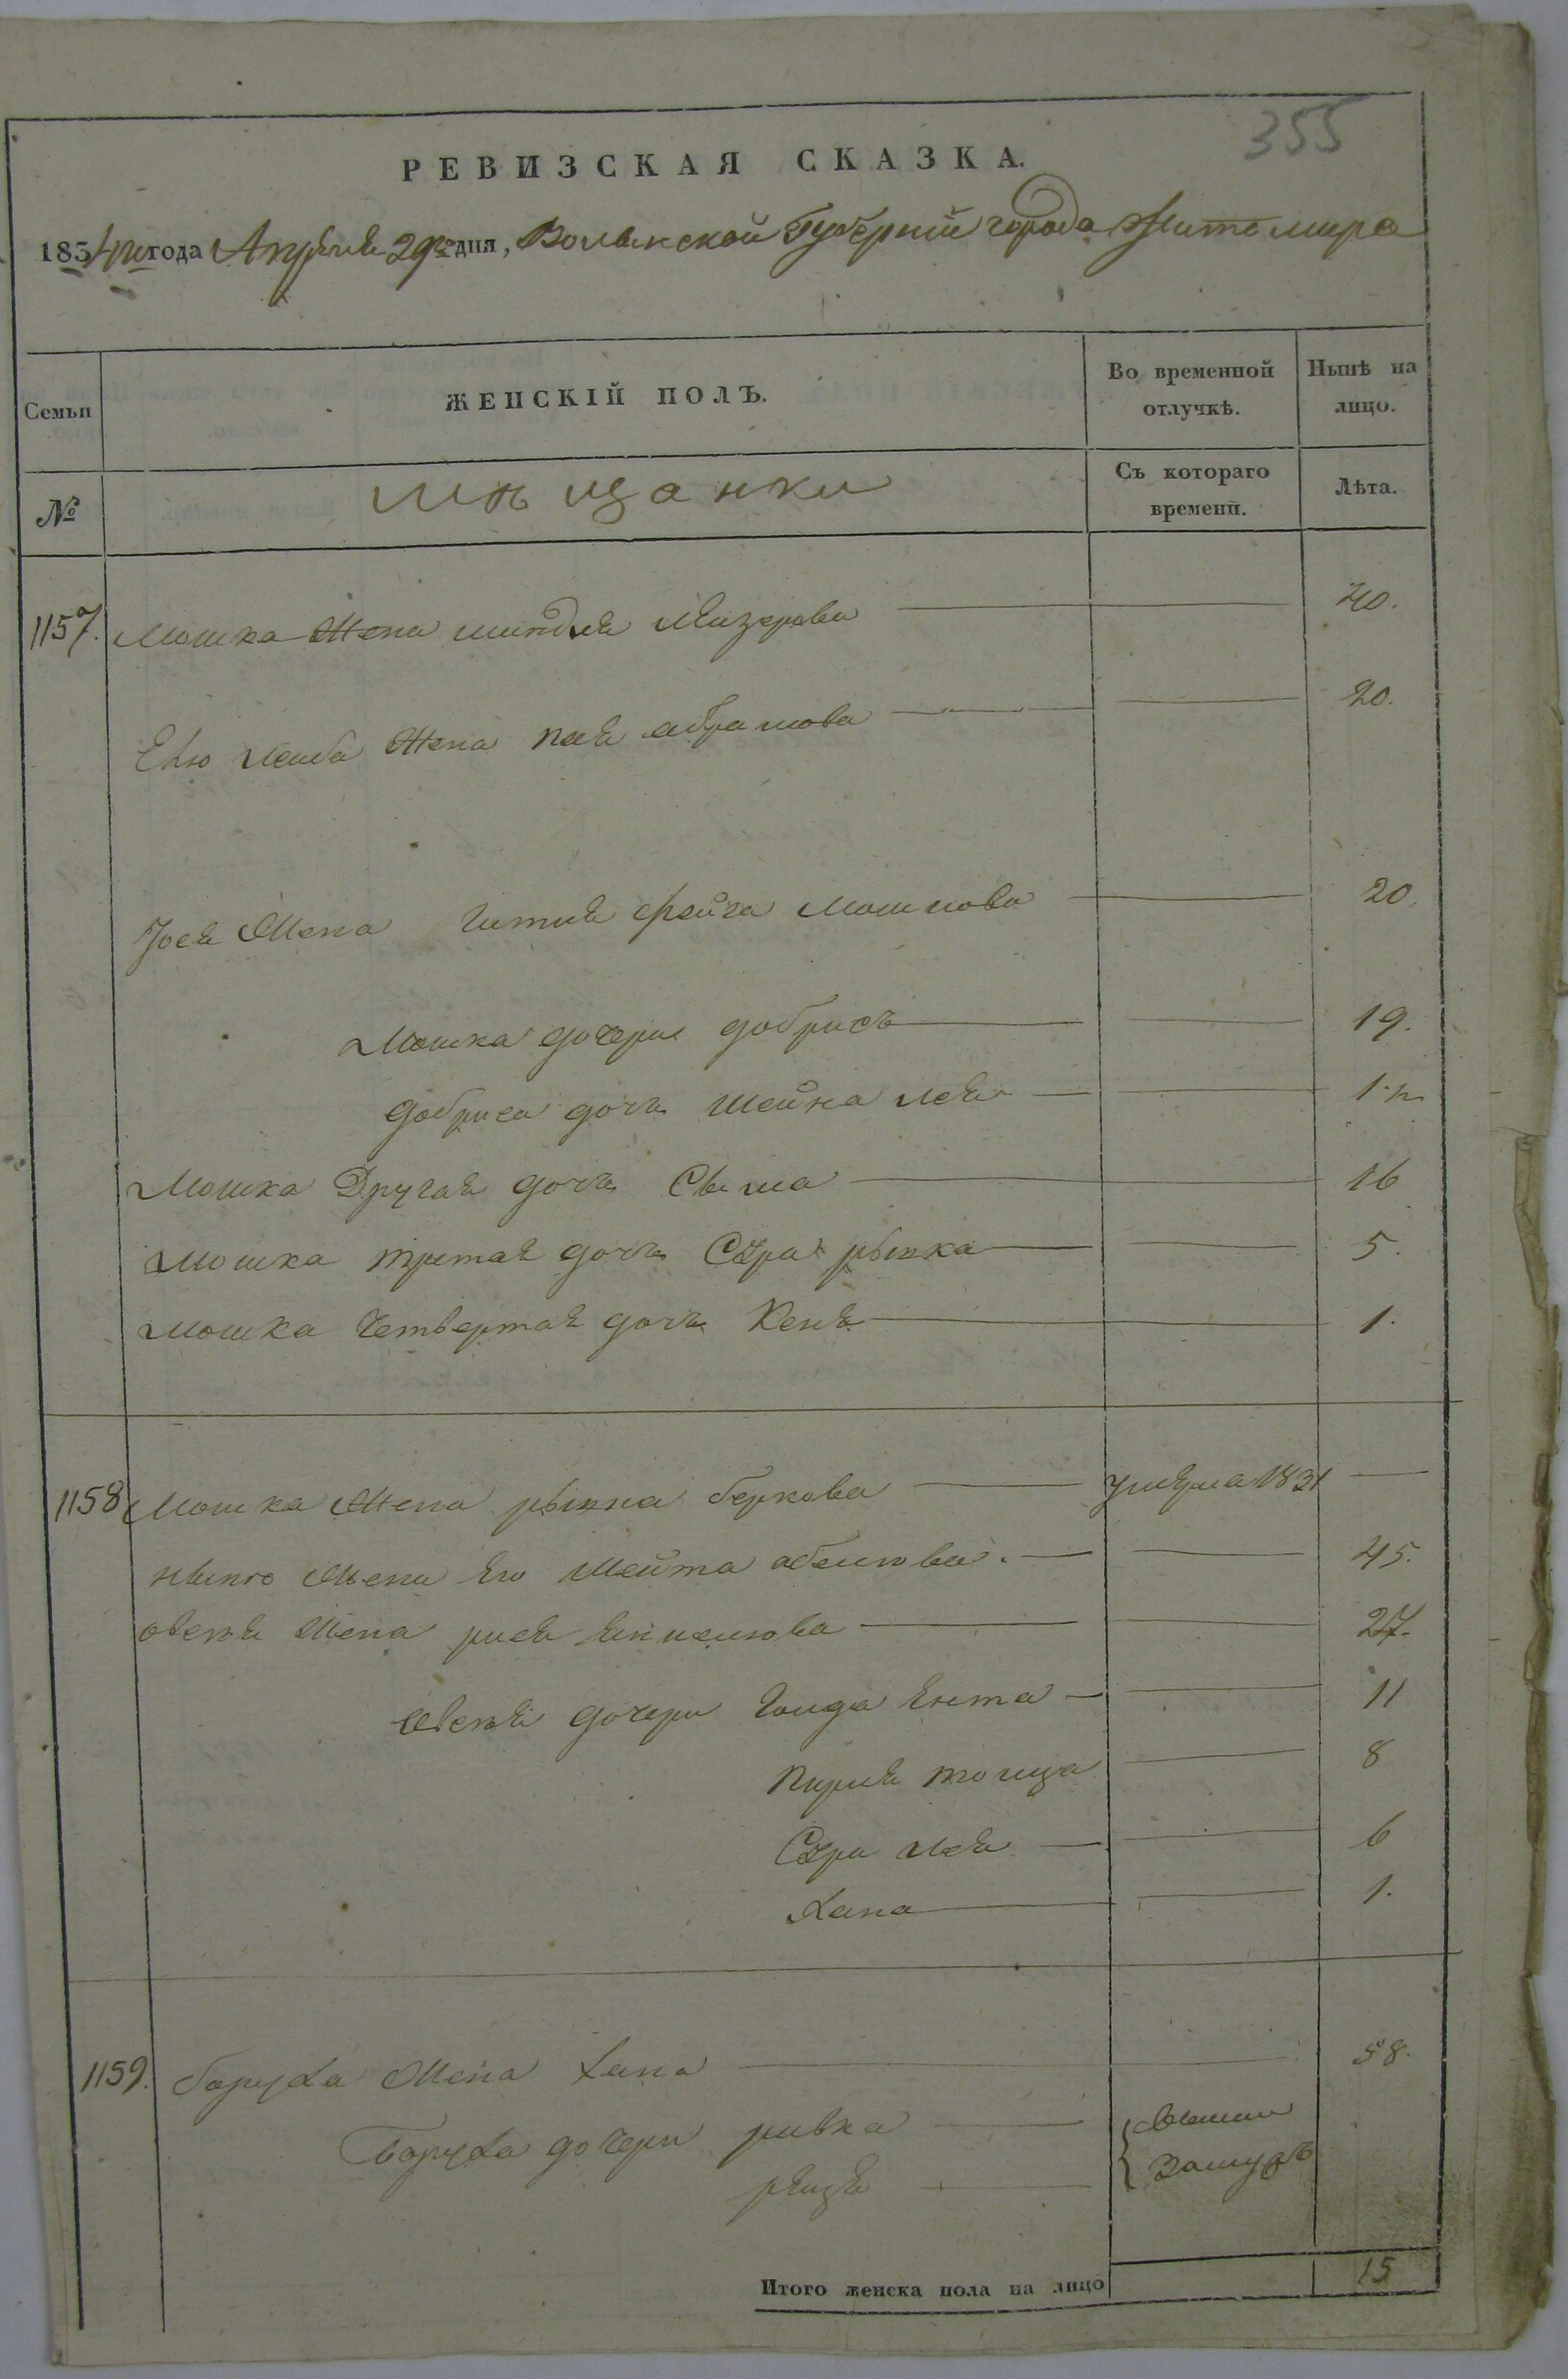 355
РЕВИЗСКАЯ СКАЗКА.
1834го года Апреля 29го дня, Волынской Губерніи города Житомира
Семьи
ЖЕНСКІЙ ПОЛЪ.
Во временной отлучкѣ.
Нынѣ на лицо.
№
мѣщанки
Съ котораго времени.
Лѣта.
1157. Мошка Жена миндля Лейзерова 40.
Лейба Жена пая абрамова 20.
Іося Жена Гитля фейга Мошкова 20.
Мошка дочери добрисъ 19.
добриса дочь шейна лея 1
Мошка Другая дочь Сыма 16
Мошка третая дочь Сура рывка 5.
мошка Четвертая дочь Кеня 1.
1158 Мошка Жена рывка беркова умерла 1831
Жена его Шейта 45.
овсея Жена рися 27.
овсея дочери Голда Ента 11
Перля 8
Сура лея 6
Хана 1.
1159. боруха Жена Хана 58.
Боруха дочери ривка
рейзя
Вышли Замужъ
Итого женска пола на лицо 15